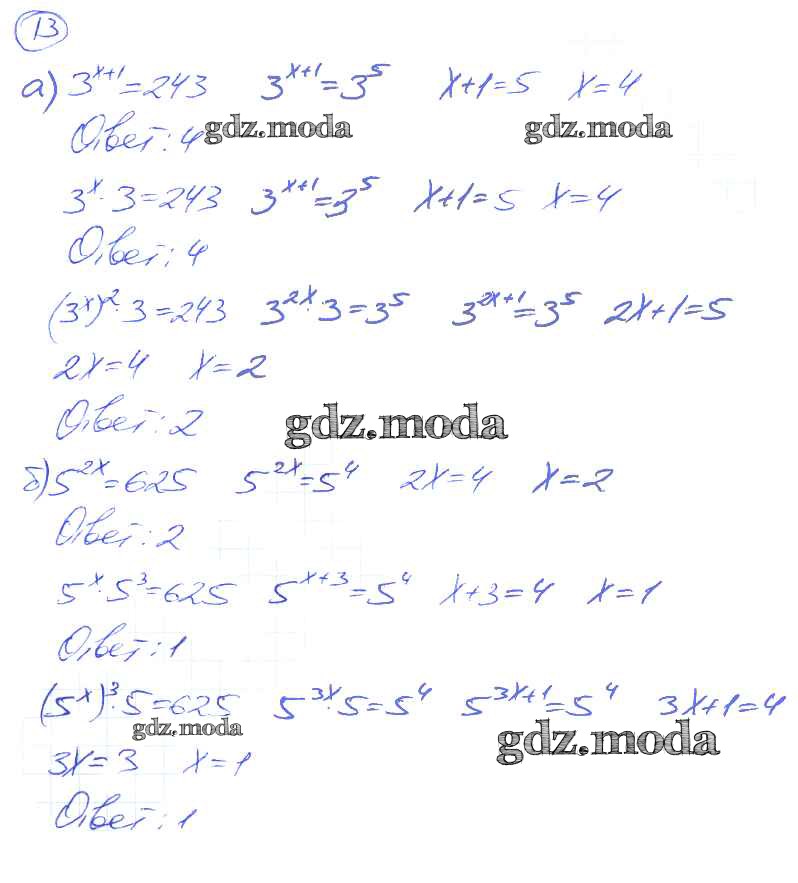 13
а) 3^{x+1}=243 3^{x+1}=3^5 x+1=5 x=4
Ответ: 4 gdz.moda gdz.moda
3^x·3=243 3^{x+1}=3^5 x+1=5 x=4
Ответ: 4
(3^x)^2·3=243 3^{2x}·3=3^5 3^{2x+1}=3^5 2x+1=5
2x=4 x=2
Ответ: 2 gdz.moda
б) 5^{2x}=625 5^{2x}=5^4 2x=4 x=2
Ответ: 2
5^x·5^3=625 5^{x+3}=5^4 x+3=4 x=1
Ответ: 1
(5^x)^3·5=625 5^{3x}·5=5^4 5^{3x+1}=5^4 3x+1=4
gdz.moda gdz.moda
3x=3 x=1
Ответ: 1